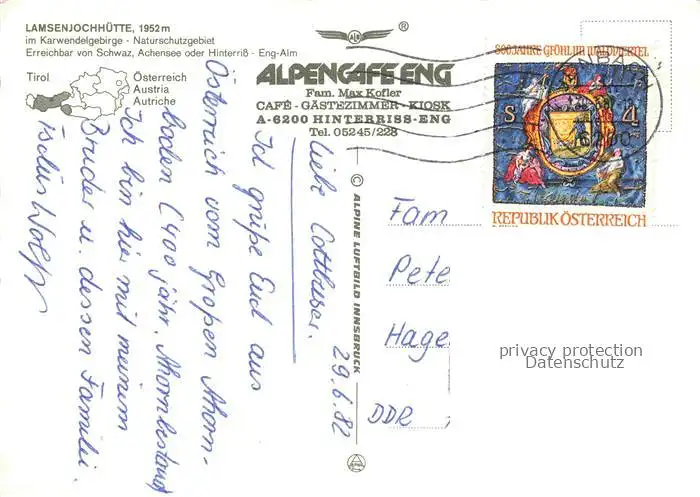 LAMSENJOCHHÜTTE, 1952 m
im Karwendelgebirge - Naturschutzgebiet
Erreichbar von Schwaz, Achensee oder Hinterriß - Eng-Alm
Tirol
Österreich
Austria
Autriche
®
ALPENCAFE ENG
Fam. Max Kofler
CAFÉ - GÄSTEZIMMER - KIOSK
A-6200 HINTERRISS-ENG
Tel. 05245/228
© ALPINE LUFTBILD INNSBRUCK
800 JAHRE GRÖHL IM WALDVIERTEL
S 4
REPUBLIK ÖSTERREICH
29.6.82
Liebe Cottbuser.
Ich grüße Euch aus
Österreich vom Großen Ahorn-
boden (400 jähr. Ahornbestand
Ich bin hier mit meinem
Bruder u. dessen Familie.
Tschüs Wolf
Fam
Pete
Hage
DDR
privacy protection
Datenschutz